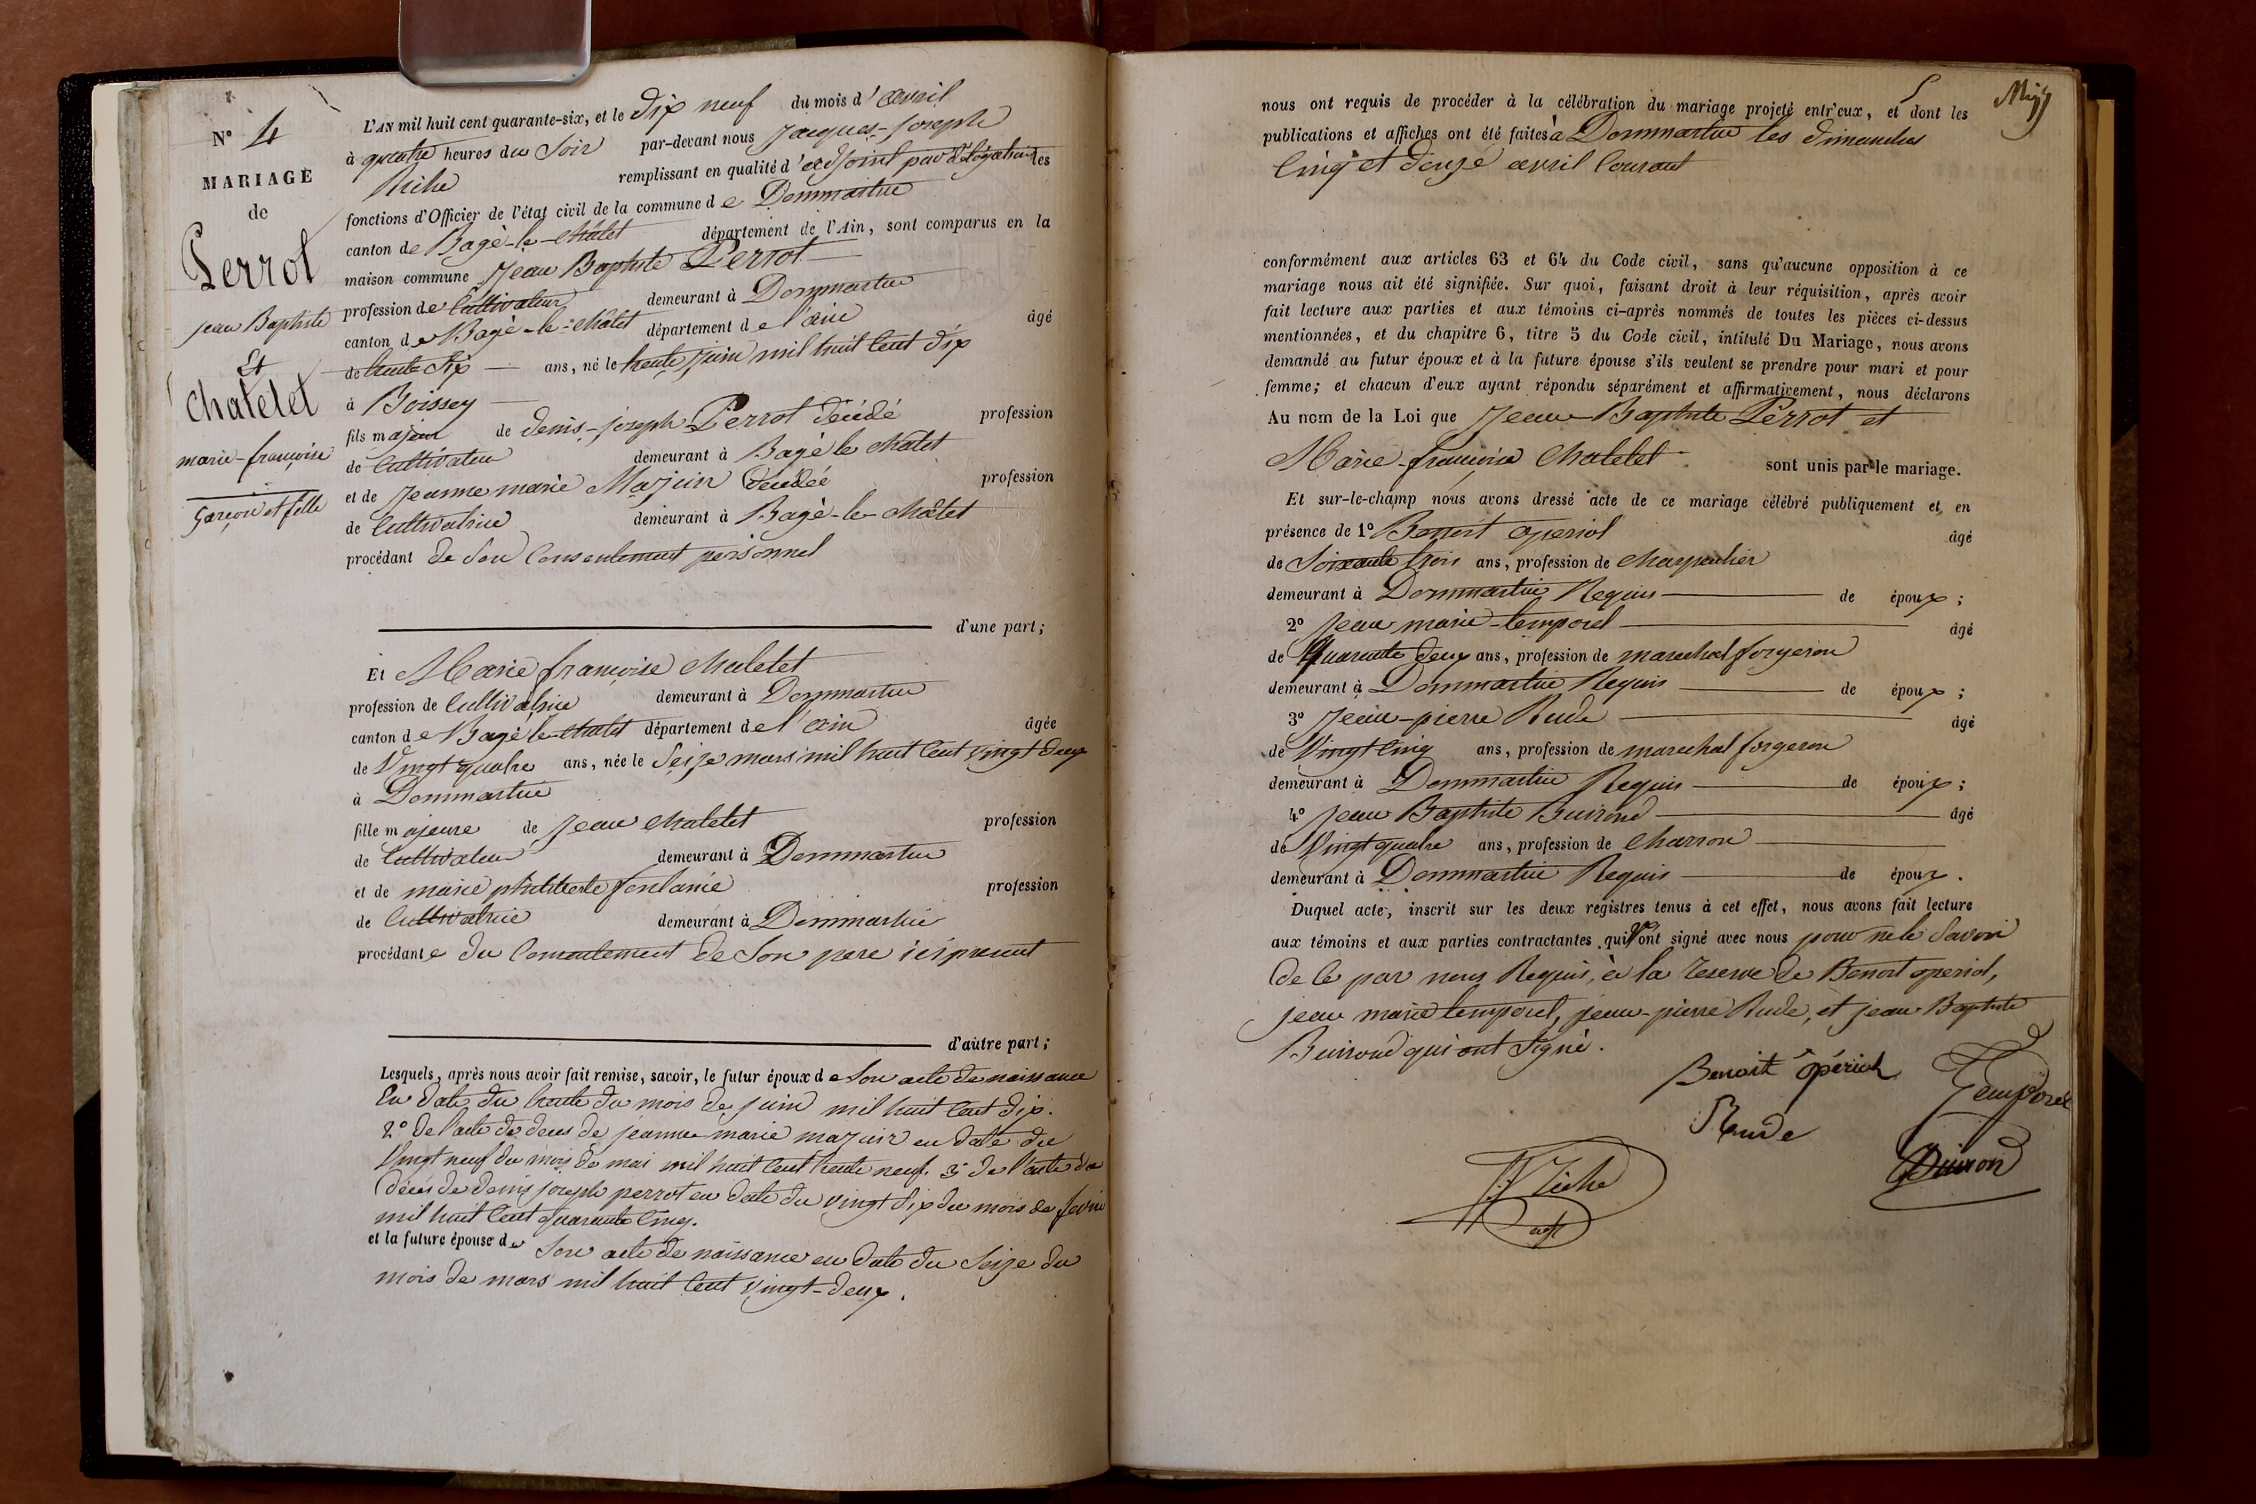 N° 4
MARIAGE
de
Perrot
jean Baptiste
Et
Chatelet
marie-françoise
Garçon et fille
L'AN mil huit cent quarante-six, et le dix neuf du mois d'avril
à quatre heures du Soir par-devant nous Jacques-Joseph
Riche remplissant en qualité d'adjoint par délégation les
fonctions d'Officier de l'état civil de la commune de Dommartin
canton de Bagé-le-châtel département de l'Ain, sont comparus en la
maison commune Jean Baptiste Perrot
profession de Cultivateur demeurant à Dommartin
canton de Bagé-le-châtel département de l'ain âgé
de trente six ans, né le trente juin mil huit Cent dix
à Boissey
fils majeur de denis-joseph Perrot décédé profession
de Cultivateur demeurant à Bagé le chatel
et de Jeanne marie Mazuir décédée profession
de Cultivatrice demeurant à Bagé-le-châtel
procédant de Son Consentement personnel
d'une part;
Et Marie françoise chatelet
profession de Cultivatrice demeurant à Dommartin
canton de Bagé le chatel département de l'ain âgée
de Vingt quatre ans, née le Seize mars mil huit Cent vingt deux
à Dommartin
fille majeure de Jean chatelet profession
de Cultivateur demeurant à Dommartin
et de marie philiberte fontanie profession
de Cultivatrice demeurant à Dommartin
procédante du Consentement de Son pere ici present
d'autre part;
Lesquels, après nous avoir fait remise, savoir, le futur époux de Son acte de naissance
En date du trente du mois de juin mil huit Cent dix.
2° de l'acte de deces de jeanne marie mazuir en date du
Vingt neuf du mois de mai mil huit Cent trente neuf. 3° de l'acte de
décés de denis joseph perrot en date du vingt six du mois de fevrier
mil huit Cent quarante Cinq.
et la future épouse de Son acte de naissance en date du Seize du
mois de mars mil huit Cent vingt-deux.
nous ont requis de procéder à la célébration du mariage projeté entr'eux, et dont les
publications et affiches ont été faites à Dommartin les dimanches
Cinq et douze avril Courant
conformément aux articles 63 et 64 du Code civil, sans qu'aucune opposition à ce
mariage nous ait été signifiée. Sur quoi, faisant droit à leur réquisition, après avoir
fait lecture aux parties et aux témoins ci-après nommés de toutes les pièces ci-dessus
mentionnées, et du chapitre 6, titre 5 du Code civil, intitulé Du Mariage, nous avons
demandé au futur époux et à la future épouse s'ils veulent se prendre pour mari et pour
femme; et chacun d'eux ayant répondu séparément et affirmativement, nous déclarons
Au nom de la Loi que Jean Baptiste Perrot et
Marie-françoise Chatelet sont unis par le mariage.
Et sur-le-champ nous avons dressé acte de ce mariage célébré publiquement et en
présence de 1° Benoit operiol âgé
de Soixante trois ans, profession de charpentier
demeurant à Dommartin Requis de époux;
2° Jean marie temporel âgé
de Quarante deux ans, profession de marechal forgeron
demeurant à Dommartin Requis de époux;
3° Jean-pierre Rude âgé
de Vingt Cinq ans, profession de marechal forgeron
demeurant à Dommartin Requis de époux;
4° Jean Baptiste Buirond âgé
de Vingt quatre ans, profession de Charron
demeurant à Dommartin Requis de époux.
Duquel acte, inscrit sur les deux registres tenus à cet effet, nous avons fait lecture
aux témoins et aux parties contractantes qui n'ont signé avec nous pour ne le Savoir
de ce par nous Requis, à la reserve de Benoit operiol,
jean marie temporel, jean-pierre Rude, et jean Baptiste
Buirond qui ont Signé.
Benoit opériol
Temporel
Rude
Buirond
Riche
adjt